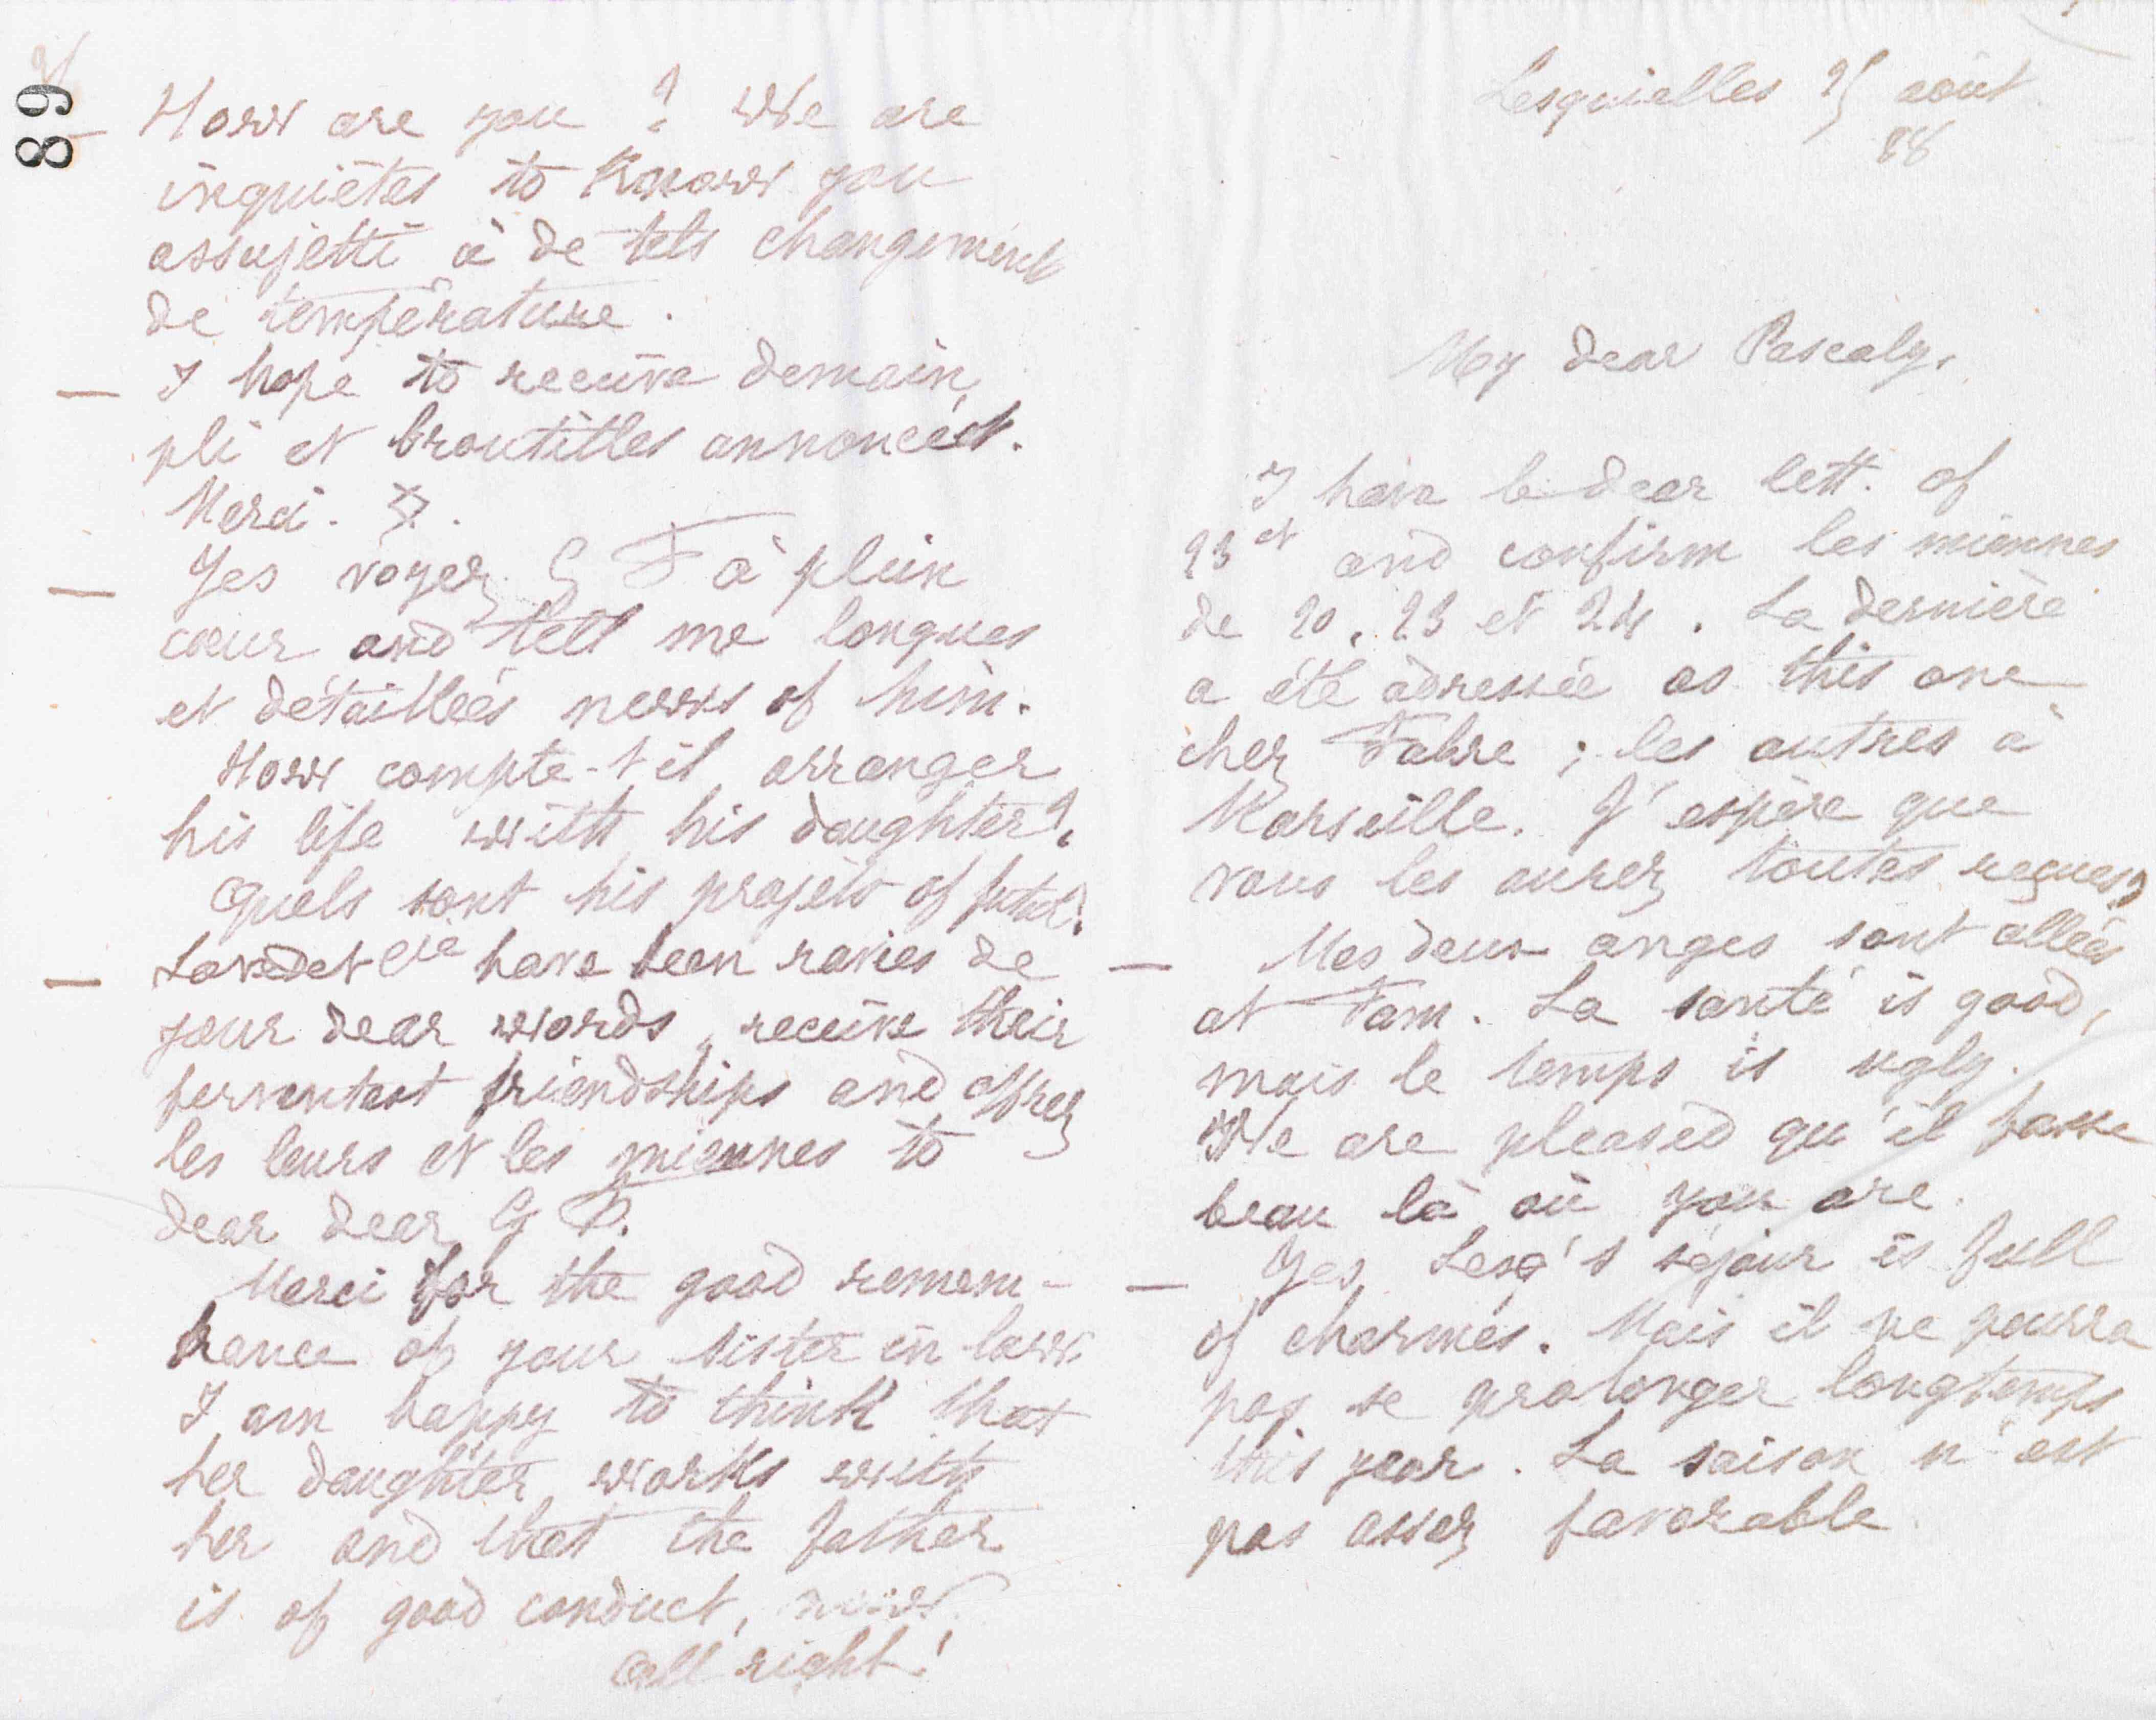 Lesquielles 25 août
88
My dear Pascaly,
I have le dear lett. of
23 et and confirm les miennes
de 20, 23 et 24. La dernière
a été adressée as this one
chez Fabre ; les autres à
Marseille. J'espère que
vous les aurez toutes reçues,
— Mes deux anges sont allées
at Fam. La santé is good,
mais le temps is ugly.
We are pleased qu'il fasse
beau là où you are.
— Yes, Lesq's séjour is full
of charmes. Mais il ne pourra
pas se prolonger longtemps
this year. La saison n'est
pas assez favorable.
89
— How are you ? We are
inquiètes to know you
assujetti à de tels changements
de température.
— I hope to receive demain,
pli et broutilles annoncées.
Merci.
— Yes voyez G F à plein
cœur and tell me longues
et détaillées news of him.
How compte-t-il arranger
his life with his daughter?
Quels sont his projets of futur?
— Lavedet Cie have been ravies de
your dear words, receive their
ferventest friendships and offrez
les leurs et les miennes to
dear dear G F.
Merci for the good remem-
brance of your sister in law.
I am happy to think that
her daughter works with
her and that the father
is of good conduct, now.
All right!